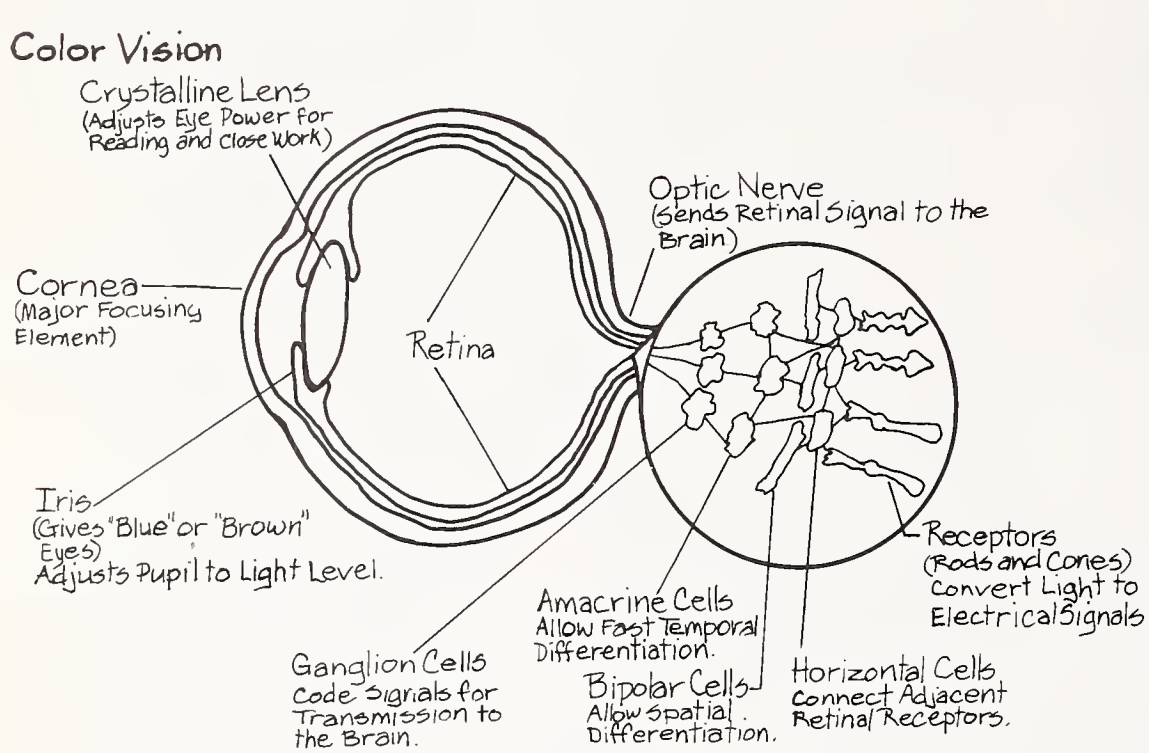 Color Vision
Crystalline Lens
(Adjusts Eye Power for
Reading and Close Work)
Optic Nerve
(Sends Retinal Signal to the
Brain)
Cornea
(Major Focusing
Element)
Retina
Iris
(Gives "Blue" or "Brown"
Eyes)
Adjusts Pupil to Light Level.
Receptors
(Rods and Cones)
Convert Light to
Electrical Signals
Amacrine Cells
Allow Fast Temporal
Differentiation.
Ganglion Cells
Code Signals for
Transmission to
the Brain.
Bipolar Cells
Allow Spatial
Differentiation.
Horizontal Cells
Connect Adjacent
Retinal Receptors.